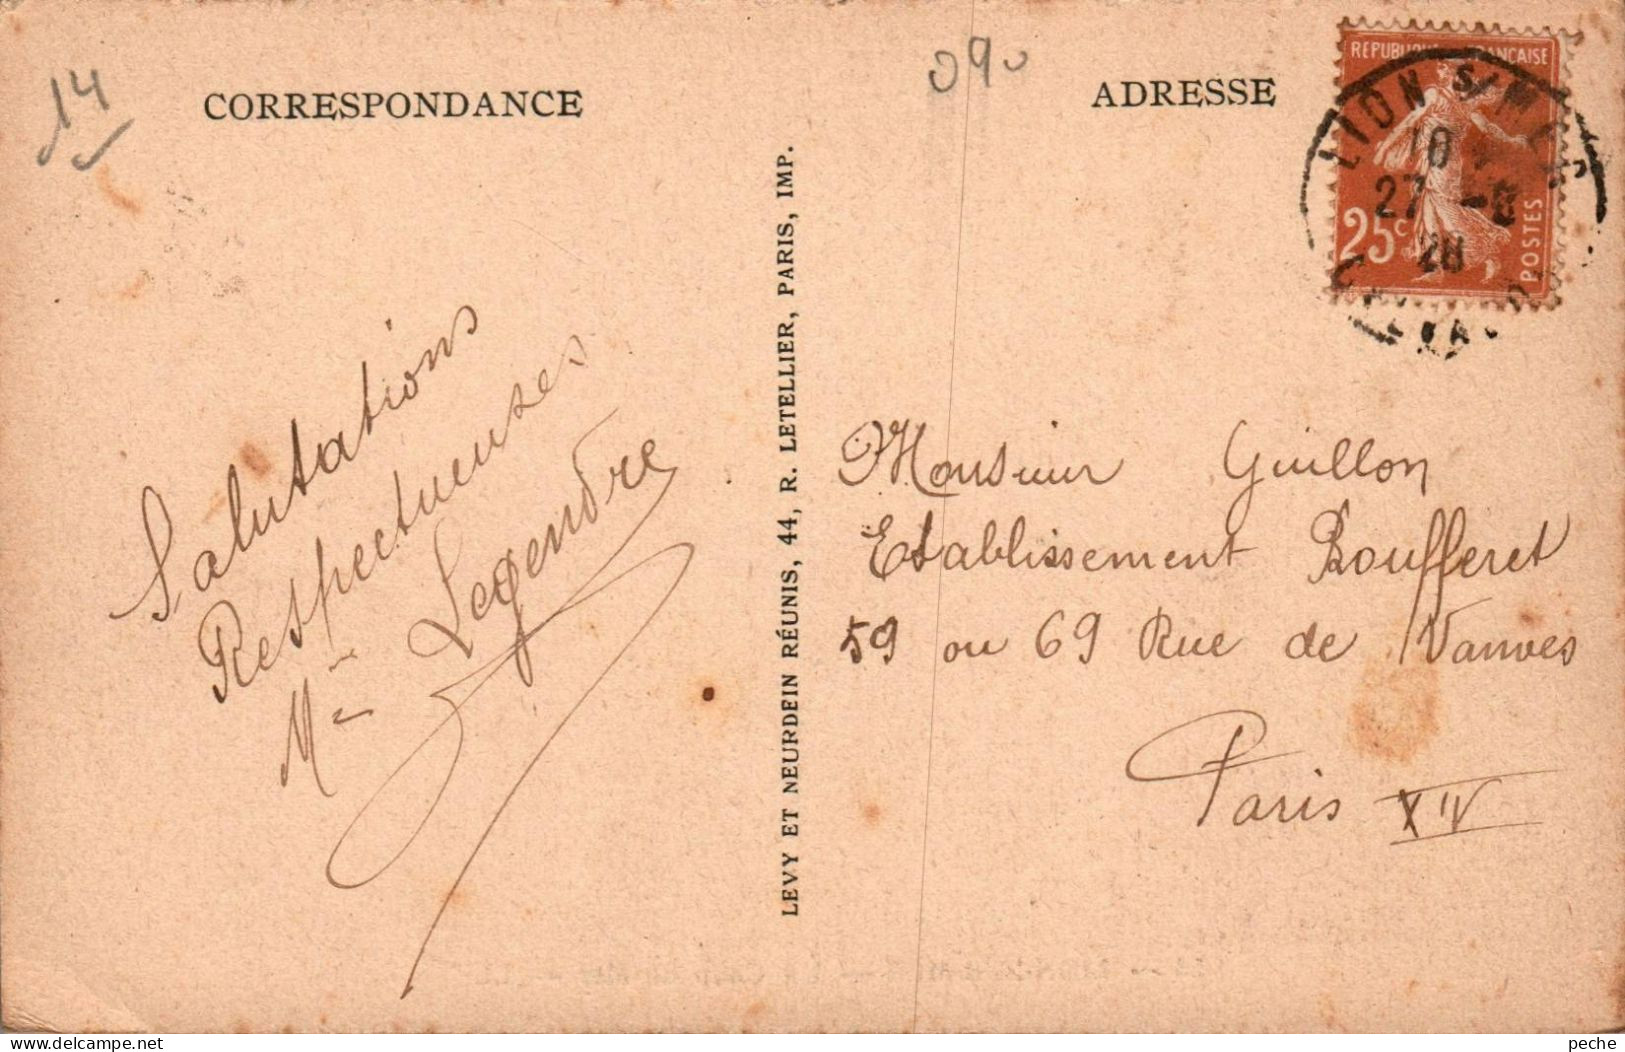 14
CORRESPONDANCE
Salutations
Respectueuses
Legendre
LEVY ET NEURDEIN RÉUNIS, 44, R. LETELLIER, PARIS, IMP.
090
ADRESSE
REPUBLIQUE FRANÇAISE
25c
POSTES
LION S/MER
18
27 -8
28
Monsieur Guillon
Etablissement Boufferet
59 ou 69 Rue de Vanves
Paris XIV
peche